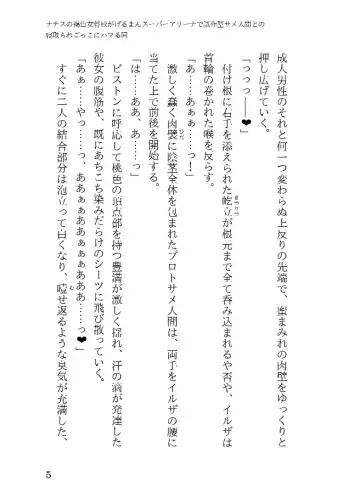 ナチスの褐色女将校がげるまんスーパーアリーナで試作型サメ人間との
寝取られごっこにハマる回
成人男性のそれと何一つ変わらぬ上反りの先端で、蜜まみれの肉壁をゆっくりと
押し広げていく。
「っっっ……❤」
付け根に右手を添えられた屹立が根元まで全て呑み込まれるや否や、イルザは
首輪の巻かれた喉を反らす。
「っ……あぁぁ……っ！」
激しく蠢く肉襞に陰茎全体を包まれたプロトサメ人間は、両手をイルザの腰に
当てた上で前後を開始する。
「は……ああっ、あ……っ」
ピストンに呼応して桃色の頂点部を持つ豊満が激しく揺れ、汗の滴が発達した
彼女の腹筋や、既にあちこち染みだらけのシーツに飛び散っていく。
「あぁ……やっ……っ、あぁぁぁああぁぁぁあああ……っ❤」
すぐに二人の結合部分は泡立って白くなり、噎せ返るような臭気が充満した、
5